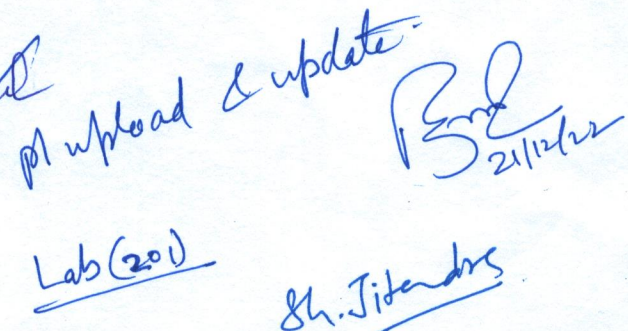 pl upload & update.
21/12/22
Lab (201)
Sh. Jitendra